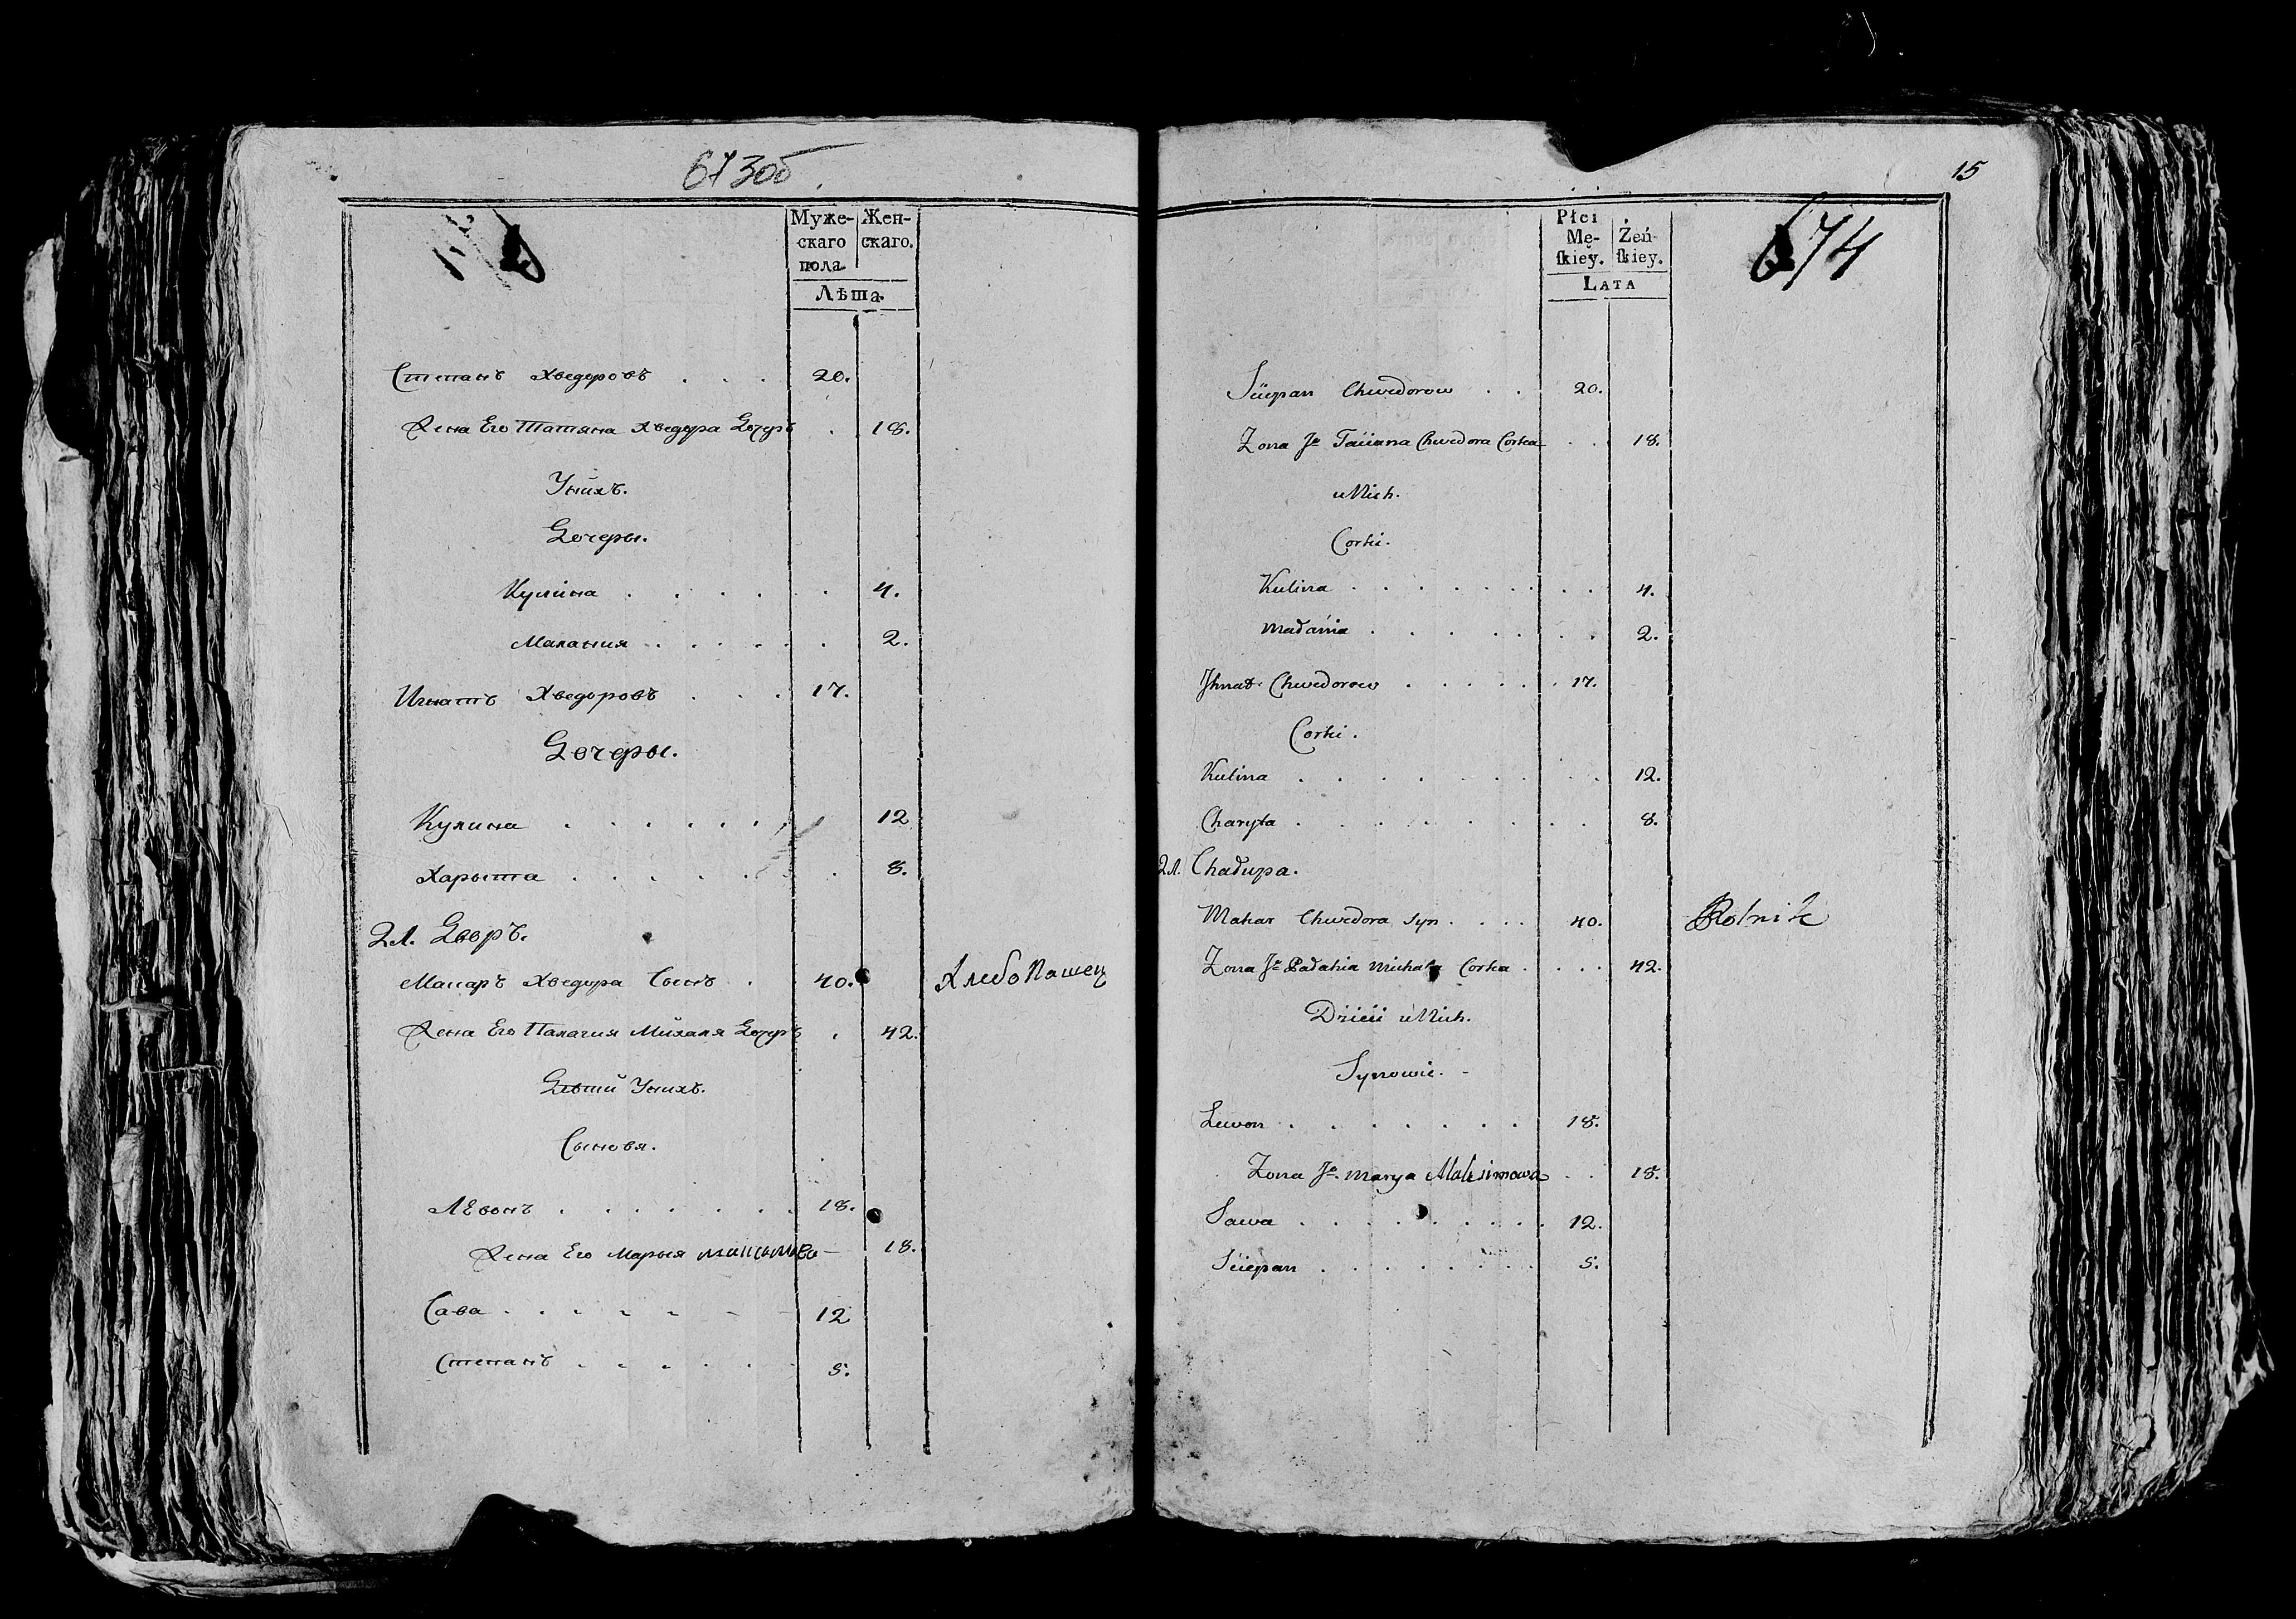 673об
Муже-
скаго
пола.
Жен-
скаго.
Лѣта.
Степанъ Хведоровъ . . . 20.
Жена Его Татяна Хведора Дочерь . 18.
Унихъ.
Дочеры.
Кулина . . . . . . 4.
Малания . . . . . . 2.
Игнатъ Хведоровъ . . . 17.
Дочеры.
Кулина . . . . . . 12
Харыта . . . . . . 8.
2Л. Дворъ.
Макаръ Хведора Сынъ . 40. Хлебопашец
Жена Его Палагия Михаля Дочерь . 42.
Дѣтй Унихъ.
Сыновя.
Лѣвонъ . . . . . . . 18.
Жена Его Марыя 18.
Сава . . . . . . 12
Степанъ . . . . . 5.
15
Płci
Mę-
ſkiey.
Żeń-
ſkiey.
Lata
674
Sciepan Chwedorow . . 20.
Zona Jo Taciana Chwedora Corka . . 18.
uNich.
Corki.
Kulina . . . . . . . . 4.
Małania . . . . . . . 2.
Jhnat Chwedorow . . . . . . 17.
Corki.
Kulina . . . . . . . . 12.
Charyta . . . . . . . . 8.
2Л. Chałupa.
Makar Chwedora Syn . . . . 40. Rolnik
Zona Jo Pałahia Michała Corka . . . . 42.
Dzieci uNich.
Synowie.
Lewon . . . . . . . 18.
Zona Jo Marya Maksimowa . . 18.
Sawa . . . . . . . . . 12.
Sciepan . . . . . . . . 5.